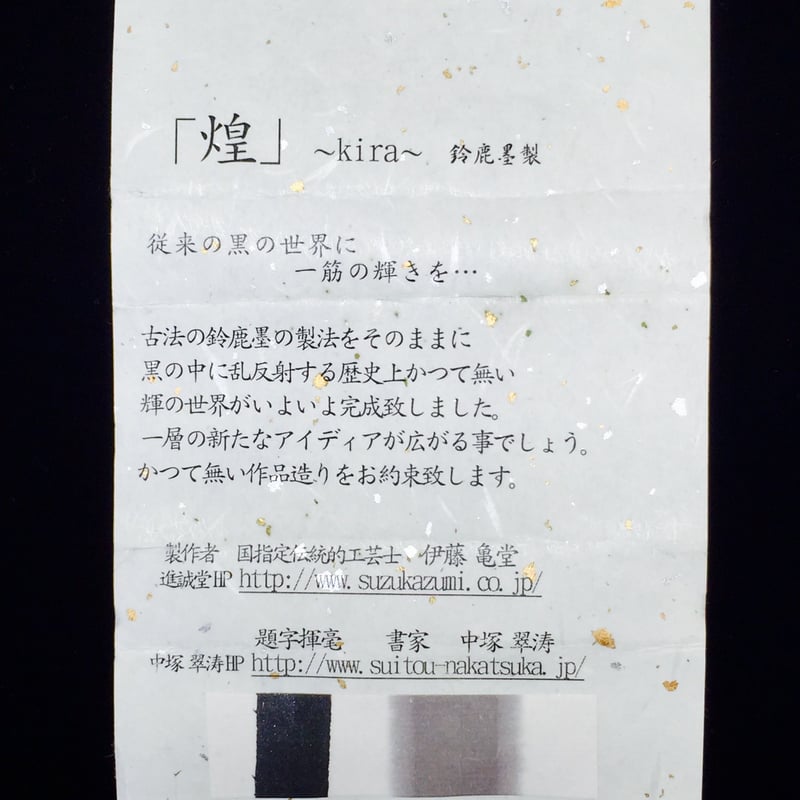 「煌」 ～kira～ 鈴鹿墨製
従来の黒の世界に
一筋の輝きを…
古法の鈴鹿墨の製法をそのままに
黒の中に乱反射する歴史上かつて無い
輝の世界がいよいよ完成致しました。
一層の新たなアイディアが広がる事でしょう。
かつて無い作品造りをお約束致します。
製作者 国指定伝統的工芸士、伊藤 亀堂
進誠堂HP http://www.suzukazumi.co.jp/
題字揮毫 書家 中塚 翠涛
中塚 翠涛HP http://www.suitou-nakatsuka.jp/